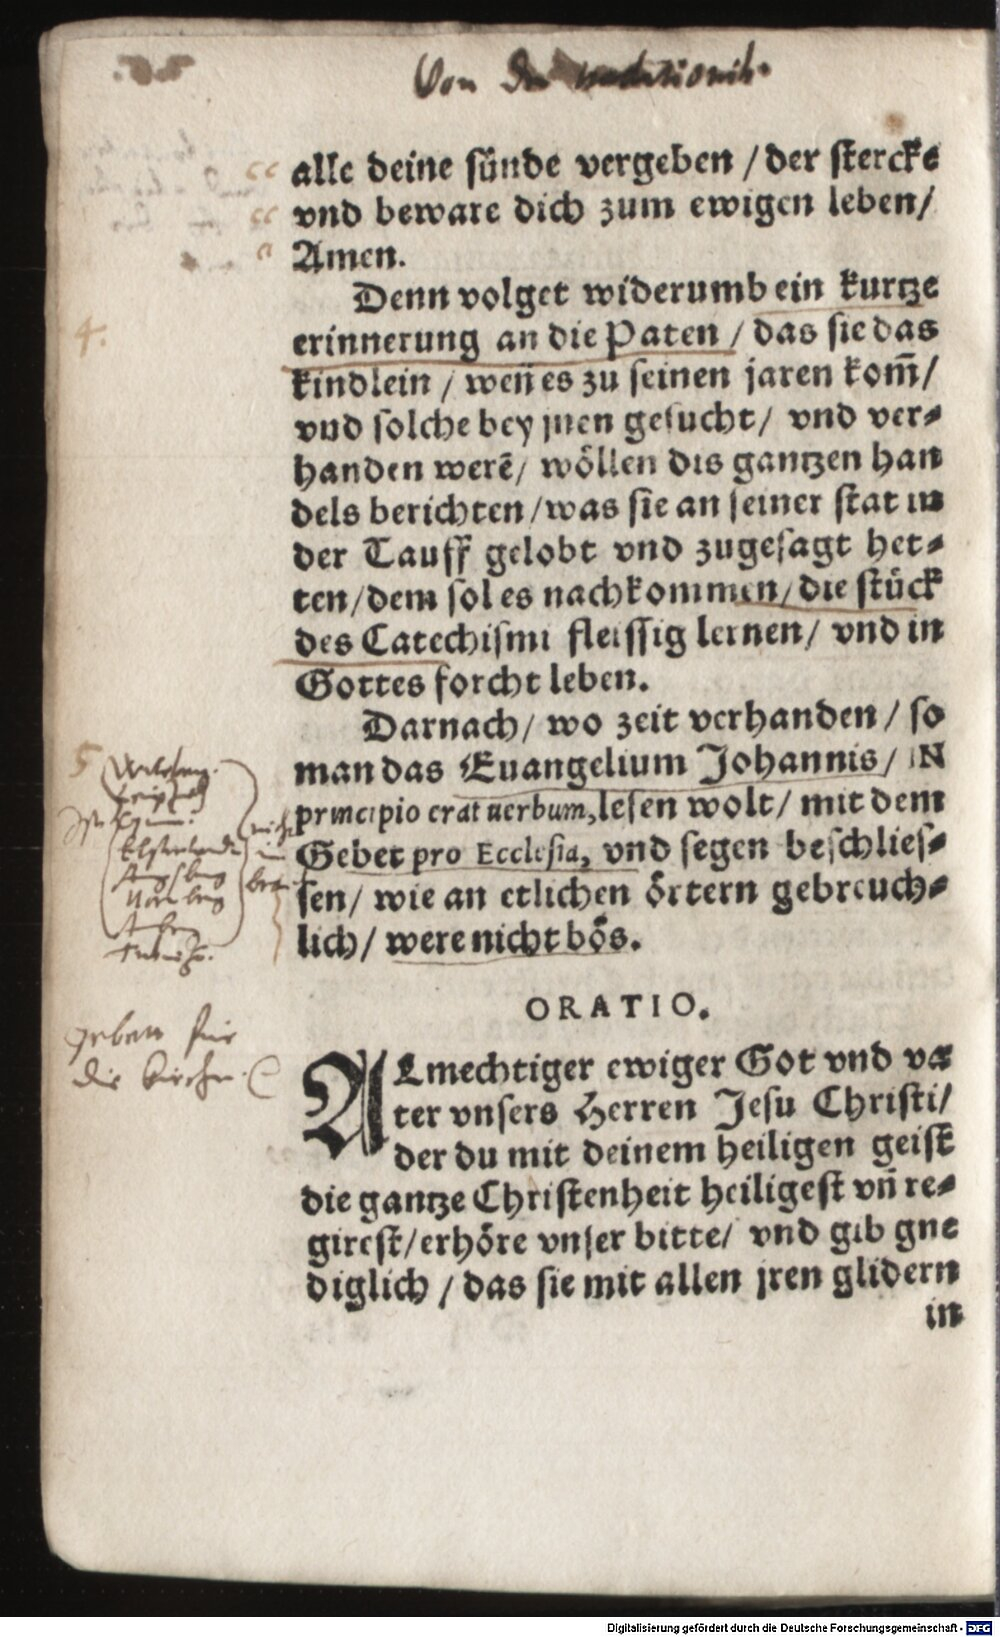 Von der
alle deine sünde vergeben / der stercke
vnd beware dich zum ewigen leben /
Amen.
Denn volget widerumb ein kurtze
4.
erinnerung an die Paten / das sie das
kindlein / weñ es zu seinen jaren kom̃ /
vnd solche bey jnen gesucht / vnd ver-
handen werẽ / wöllen dis gantzen han
dels berichten / was sie an seiner stat in
der Tauff gelobt vnd zugesagt het-
ten / dem sol es nachkommen / die stück
des Catechismi fleissig lernen / vnd in
Gottes forcht leben.
Darnach / wo zeit verhanden / so
5
man das Euangelium Johannis / IN
principio erat uerbum, lesen wolt / mit dem
Gebet pro Ecclesia, vnd segen beschlies-
sen / wie an etlichen örtern gebreuch-
lich / were nicht bös.
Augsburg
Nürnberg
geben für
die kirchen.
ORATIO.
ALmechtiger ewiger Got vnd va
ter vnsers Herren Jesu Christi /
der du mit deinem heiligen geist
die gantze Christenheit heiligest vñ re-
girest / erhöre vnser bitte / vnd gib gne
diglich / das sie mit allen jren glidern
in
Digitalisierung gefördert durch die Deutsche Forschungsgemeinschaft - DFG